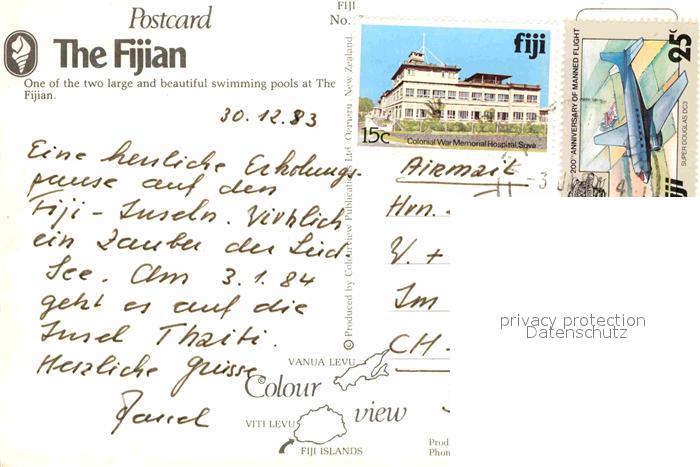 Postcard
The Fijian
One of the two large and beautiful swimming pools at The
Fijian.
30.12.83
Eine herrliche Erholungs-
pause auf den
Fiji-Inseln. Wirklich
ein Zauber der Süd
See. Am 3.1.84
geht es auf die
Insel Thaiti.
Herzliche Grüsse
FIJI
No.
© Produced by Colourview Publications Ltd. Oamaru, New Zealand.
fiji
15c
Colonial War Memorial Hospital, Suva
200th ANNIVERSARY OF MANNED FLIGHT
25c
SUPER DOUGLAS DC3
fiji
Airmail
Hrn.
V. +
Im
CH-
privacy protection
Datenschutz
VANUA LEVU
Colour
view
VITI LEVU
FIJI ISLANDS
Prod
Phon